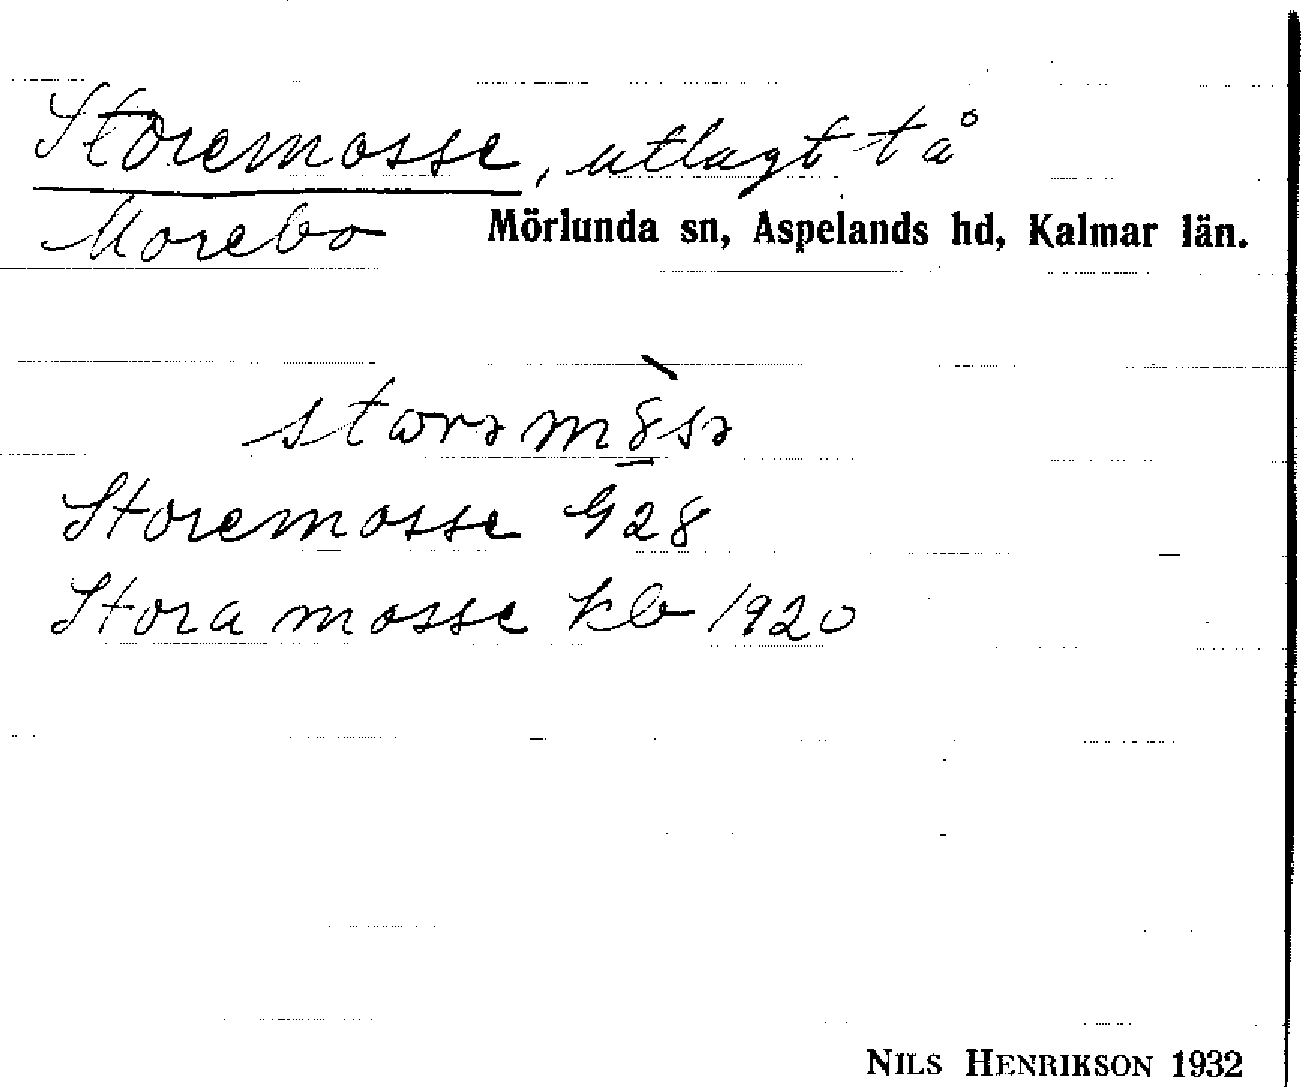 Storemosse, utlagt tå
Morebo Mörlunda sn, Aspelands hd, Kalmar län.
Storemosse G28
Stora mosse kb 1920
NILS HENRIKSON 1932